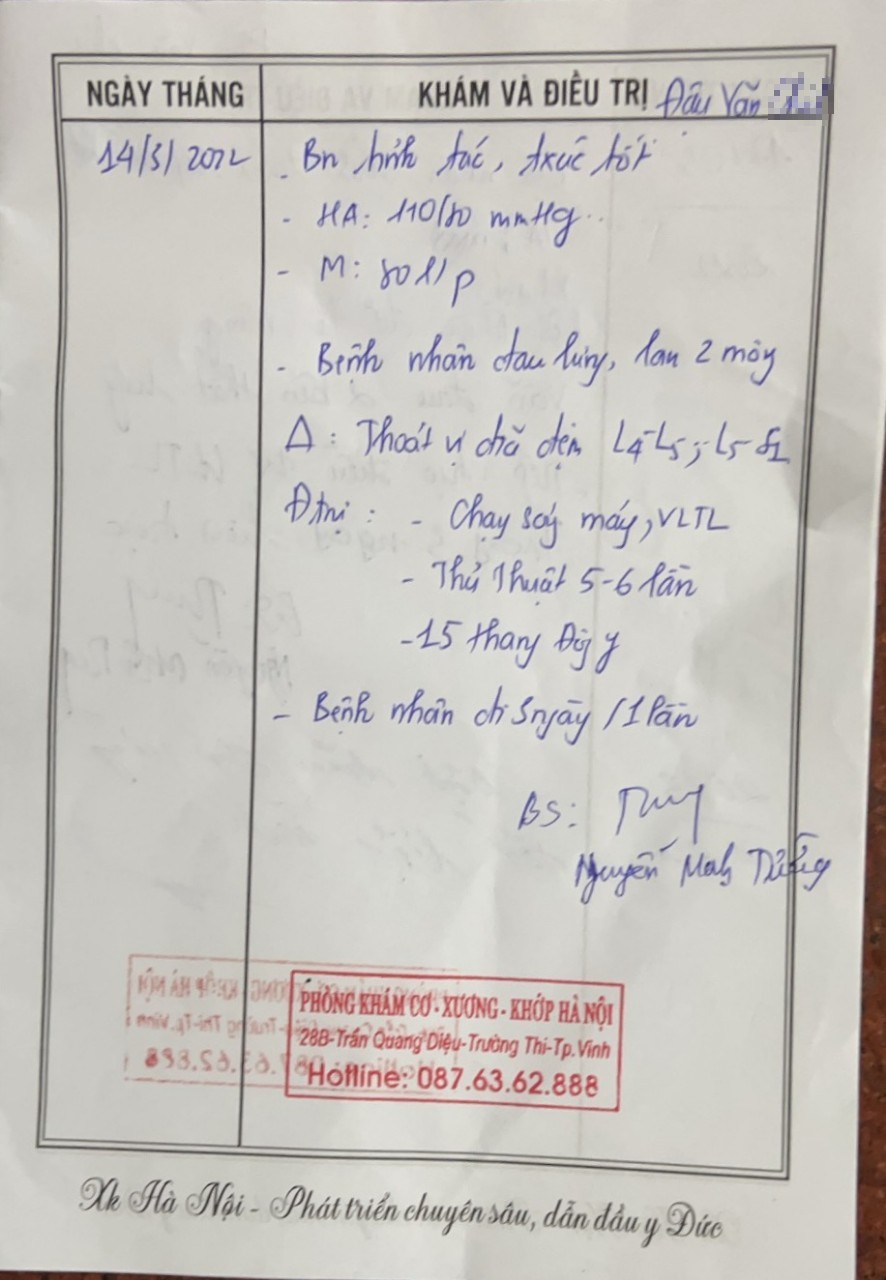 NGÀY THÁNG
KHÁM VÀ ĐIỀU TRỊ Đậu Văn
14/3/2022
- Bn tỉnh táo, tiếp xúc tốt
- HA: 110/80 mmHg
- M: 80 l/p
- Bệnh nhân đau lưng, lan 2 mông
Δ: Thoát vị đĩa đệm L4-L5; L5-S1
Đtrị: - Chạy máy, VLTL
- Thủ Thuật 5-6 lần
- 15 thang Đông y
- Bệnh nhân ngày / 1 lần
BS:
Nguyễn Mạnh
PHÒNG KHÁM CƠ - XƯƠNG - KHỚP HÀ NỘI
28B-Trần Quang Diệu-Trường Thi-Tp.Vinh
Hotline: 087.63.62.888
Xk Hà Nội - Phát triển chuyên sâu, dẫn đầu y Đức